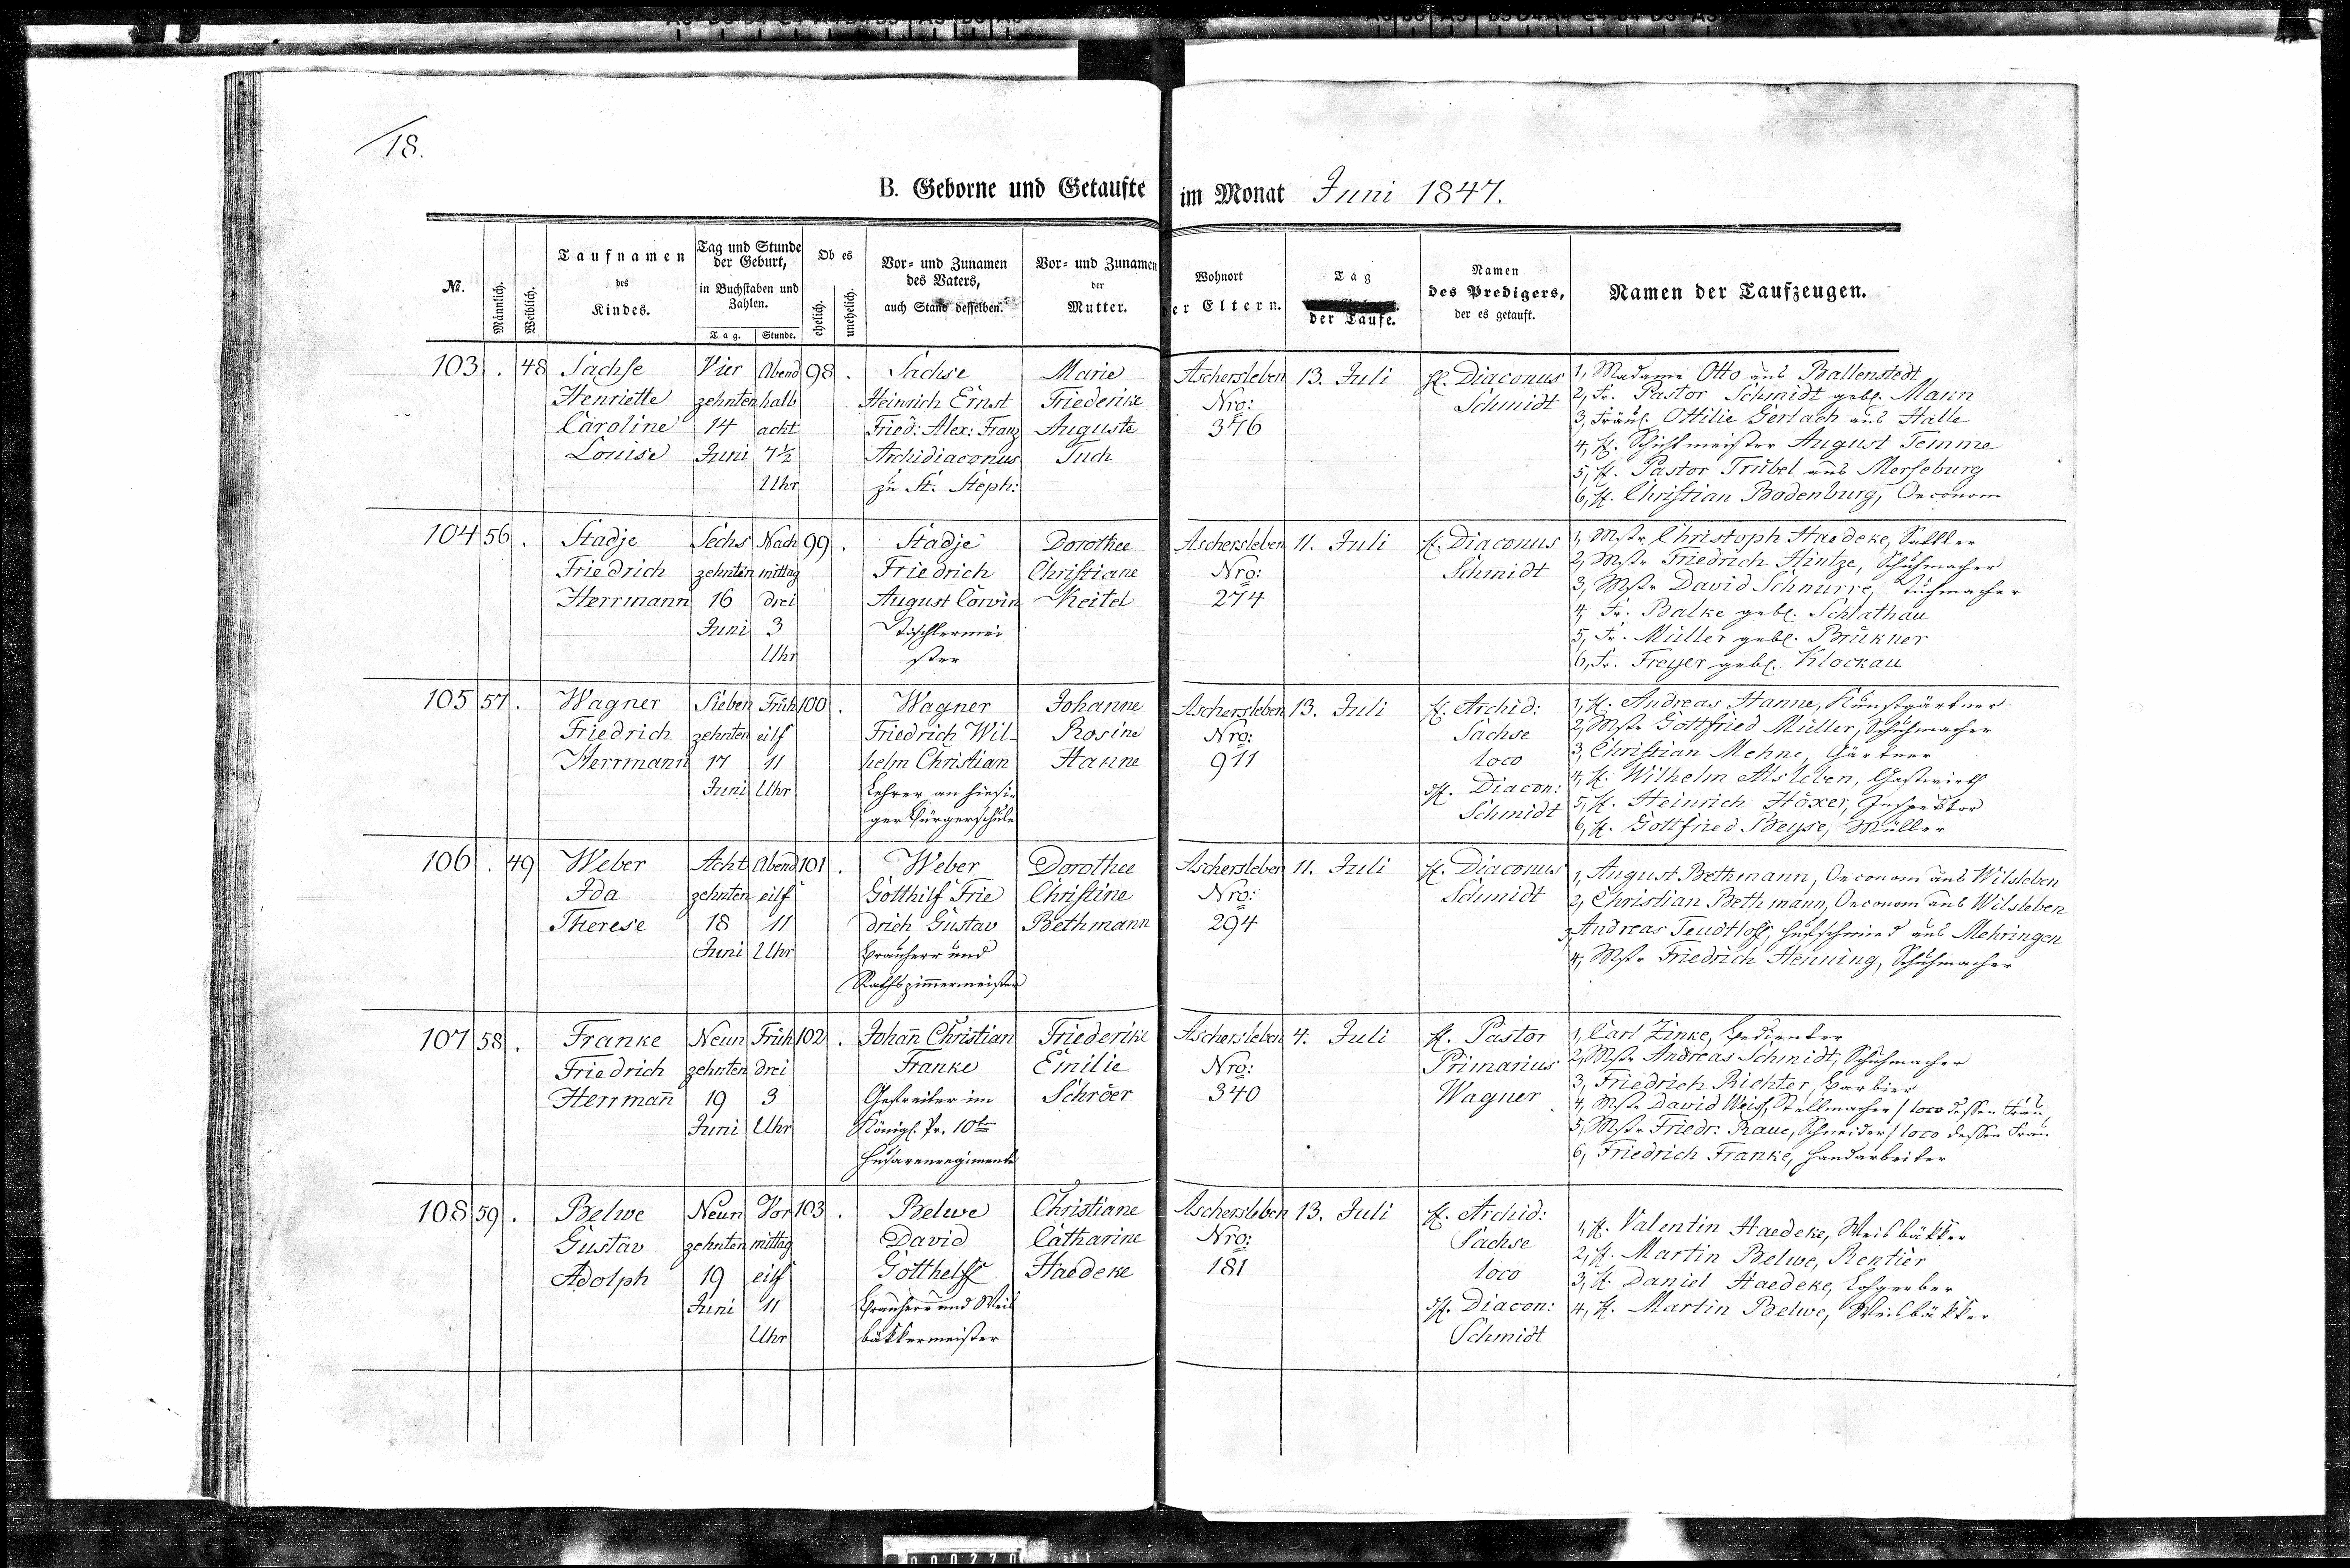 18.
B. Geborne und Getaufte im Monat Juni 1847.
№.
Männlich.
Weiblich.
Taufnamen
des
Kindes.
Tag und Stunde
der Geburt,
in Buchstaben und
Zahlen.
Tag.
Stunde.
Ob es
ehelich.
unehelich.
Vor- und Zunamen
des Vaters,
auch Stand desselben.
Vor- und Zunamen
der
Mutter.
Wohnort
der Eltern.
Tag
der Taufe.
Namen
des Predigers,
der es getauft.
Namen der Taufzeugen.
103 . 48
Sachse
Henriette
Caroline
Louise
Vier
zehnten
14
Juni
Abend
halb
acht
7½
Uhr
98 .
Sachse
Heinrich Ernst
Fried: Alex: Franz
Archidiaconus
zu St. Steph:
Marie
Friederike
Auguste
Tuch
Aschersleben
Nro:
376
13. Juli
H. Diaconus
Schmidt
1, Madame Otto aus Ballenstedt
2, Fr. Pastor Schmidt geb. Mann
3, Fräul. Ottilie Gerlach aus Halle
4, H. Schichtmeister August Temme
5, H. Pastor Trübel aus Merseburg
6, H. Christian Bodenburg, Oeconom
104 56 .
Stadje
Friedrich
Herrmann
Sechs
zehnten
16
Juni
Nach
mittag
drei
3
Uhr
99 .
Stadje
Friedrich
August Corvin
Tischlermei
ster
Dorothee
Christiane
Keitel
Aschersleben
Nro:
274
11. Juli
H. Diaconus
Schmidt
1, Mstr. Christoph Haedeke, Sattler
2, Mstr. Friedrich Hintze, Schuhmacher
3, Mstr. David Schnurre, Tuchmacher
4, Fr. Balke geb. Schlathau
5, Fr. Müller geb. Brükner
6, Fr. Freyer geb. Klockau
105 57 .
Wagner
Friedrich
Herrmann
Sieben
zehnten
17
Juni
Früh
eilf
11
Uhr
100 .
Wagner
Friedrich Wil-
helm Christian
Lehrer an hiesi-
ger Bürgerschule
Johanne
Rosine
Hanne
Aschersleben
Nro:
911
13. Juli
H. Archid:
Sachse
loco
H. Diacon:
Schmidt
1, H. Andreas Hanne, Kunstgärtner
2, Mstr. Gottfried Müller, Schuhmacher
3, Christian Mehne, Gärtner
4, H. Wilhelm Alsleben, Gastwirth
5, H. Heinrich Höxer, Inspektor
6, H. Gottfried Beyse, Müller
106 . 49
Weber
Ida
Therese
Acht
zehnten
18
Juni
Abend
eilf
11
Uhr
101 .
Weber
Gotthilf Frie
drich Gustav
Brauherr und
Rathszimmermeister
Dorothee
Christine
Bethmann
Aschersleben
Nro:
294
11. Juli
H. Diaconus
Schmidt
1, August Bethmann, Oeconom aus Wilsleben
2, Christian Bethmann, Oeconom aus Wilsleben
3, Andreas Teudtloff, Hufschmied aus Mehringen
4, Mstr. Friedrich Henning, Schuhmacher
107 58 .
Franke
Friedrich
Herrman̄
Neun
zehnten
19
Juni
Früh
drei
3
Uhr
102 .
Johan̄ Christian
Franke
Gefreiter im
Königl. Pr. 10ten
Husarenregimente
Friederike
Emilie
Schröer
Aschersleben
Nro:
340
4. Juli
H. Pastor
Primarius
Wagner
1, Carl Zinke, Bedienter
2, Mstr. Andreas Schmidt, Schuhmacher
3, Friedrich Richter, Barbier
4, Mstr. David Weiß, Stellmacher / loco dessen Frau
5, Mstr. Friedr: Raue, Schneider / loco dessen Frau
6, Friedrich Franke, Handarbeiter
108 59 .
Belwe
Gustav
Adolph
Neun
zehnten
19
Juni
Vor
mittag
eilf
11
Uhr
103 .
Belwe
David
Gotthelff
Brauherr und Weis
bäkkermeister
Christiane
Catharine
Haedeke
Aschersleben
Nro:
181
13. Juli
H. Archid:
Sachse
loco
H. Diacon:
Schmidt
1, H. Valentin Haedeke, Weisbäkker
2, H. Martin Belwe, Rentier
3, H. Daniel Haedeke, Lohgerber
4, H. Martin Belwe, Weisbäkker